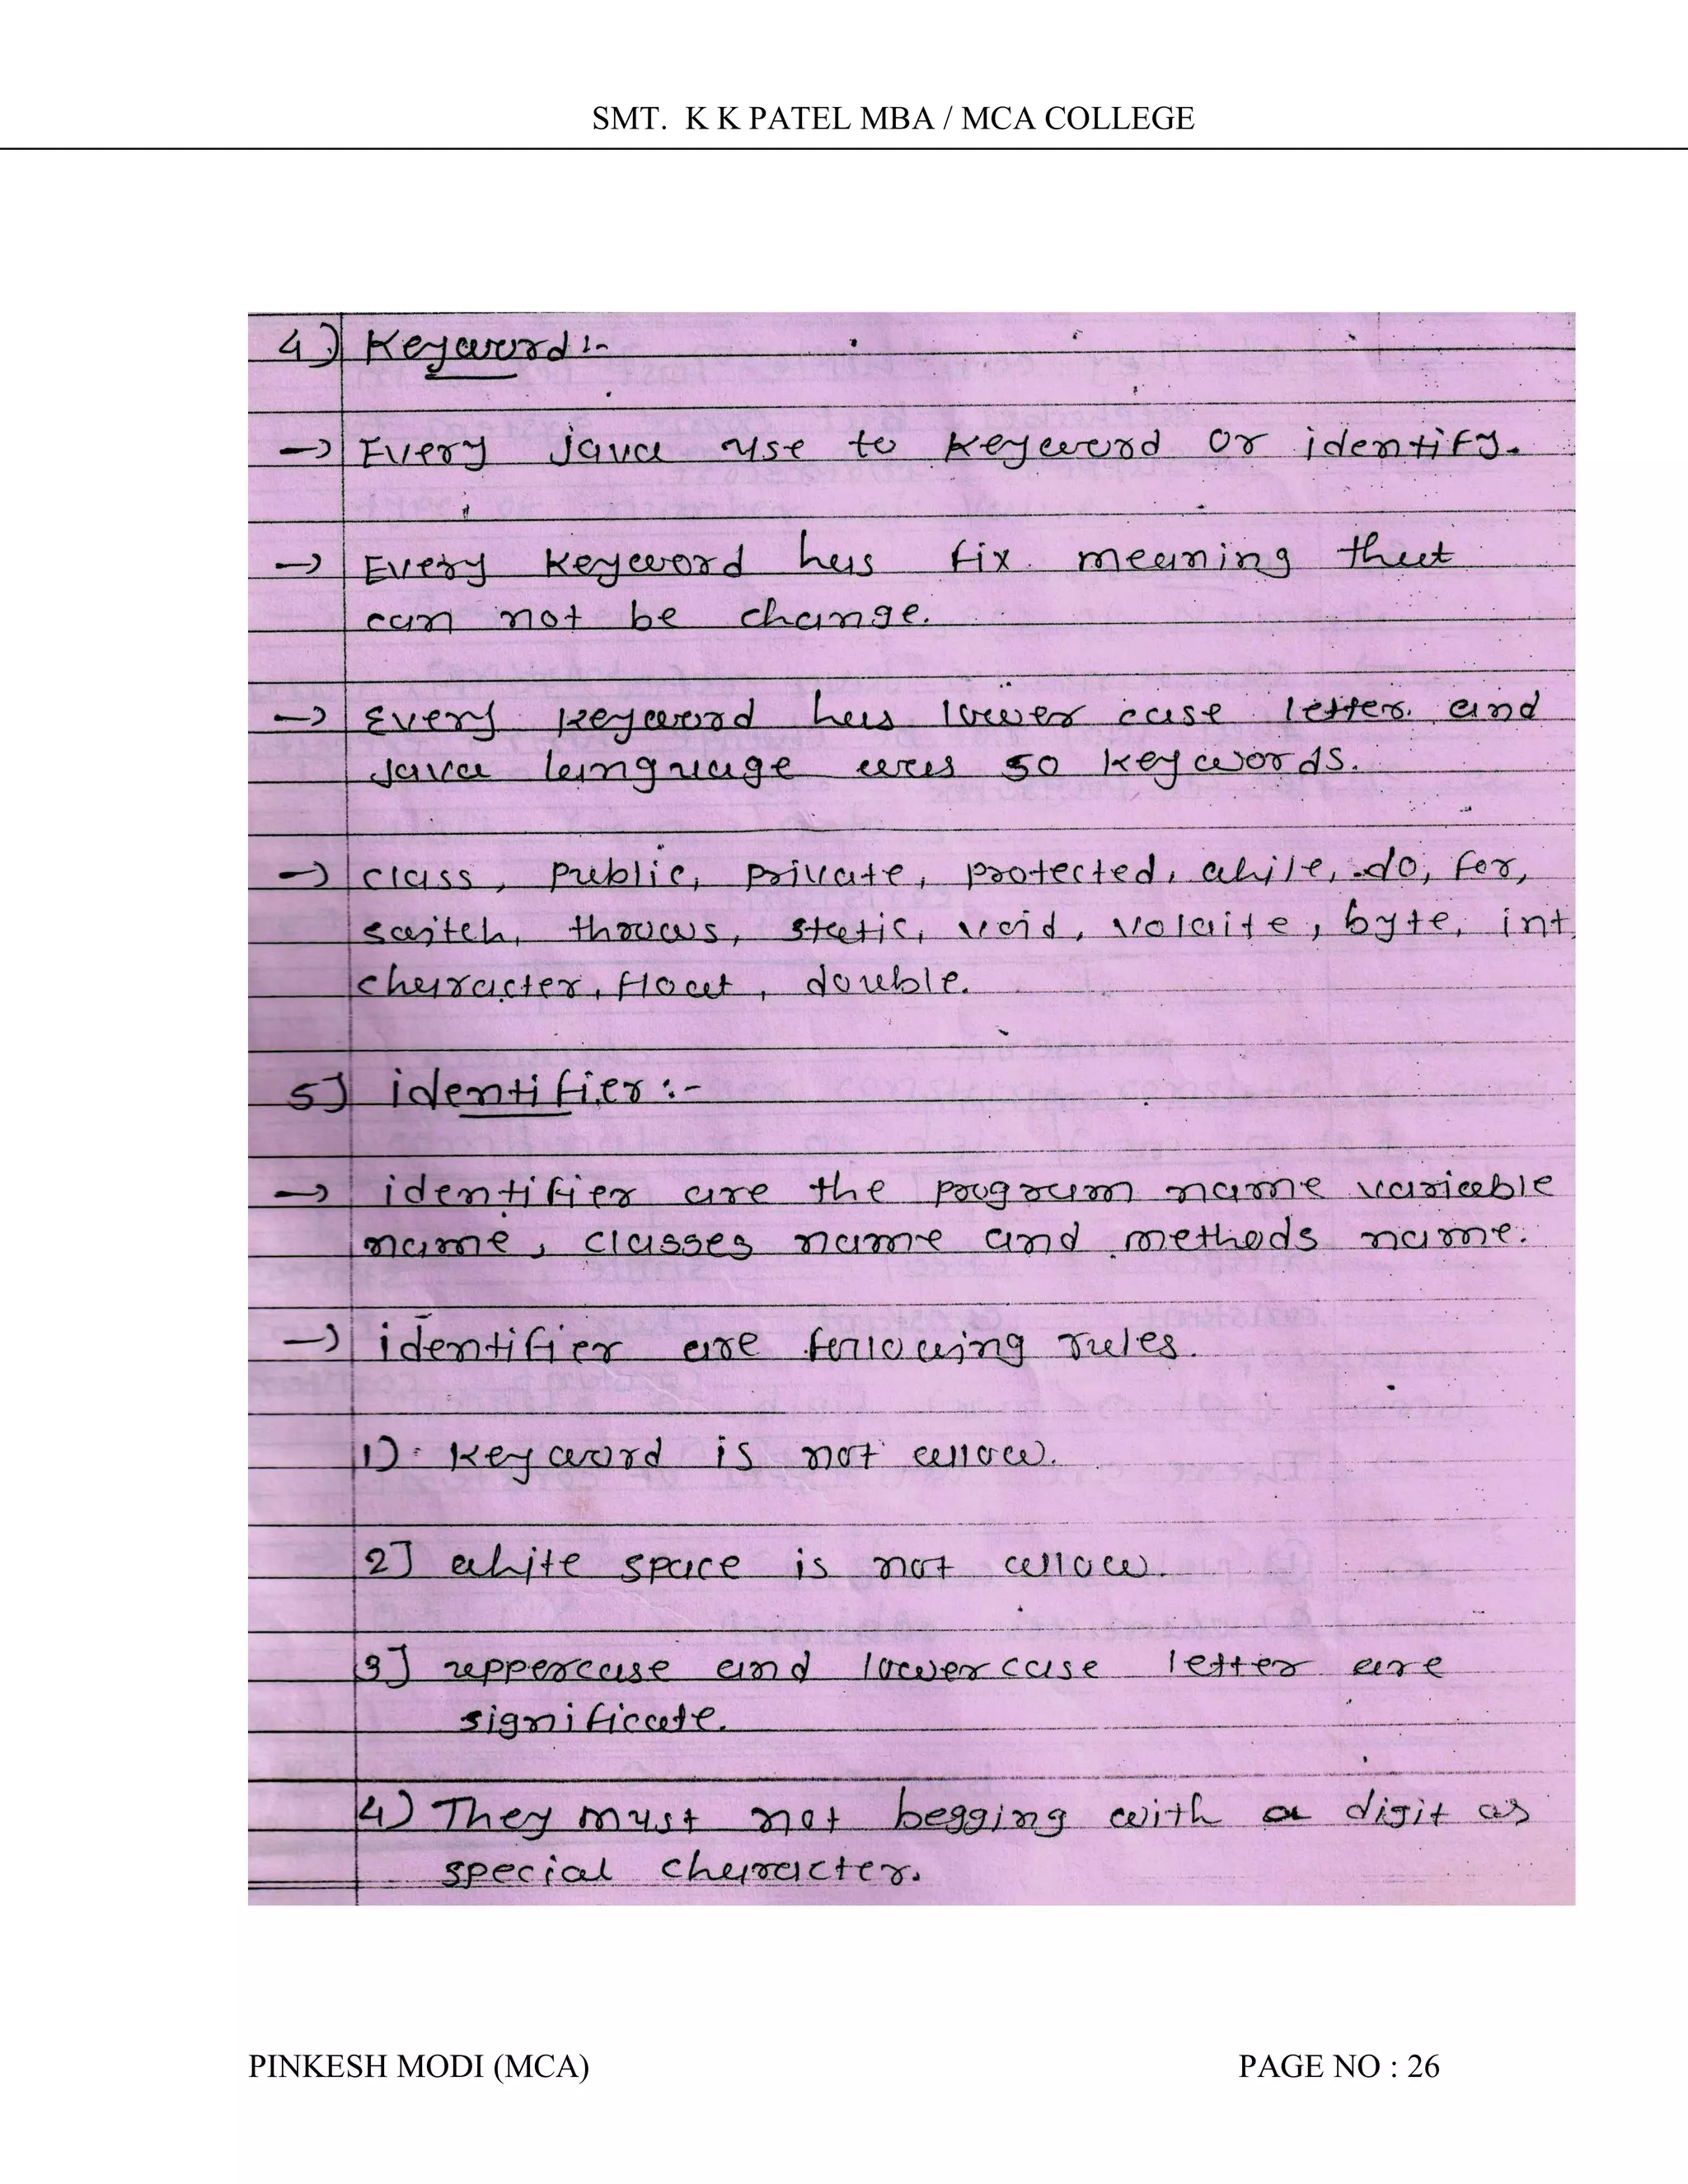 SMT. K K PATEL MBA / MCA COLLEGE
4) Keyword :-
→ Every java use to keyword or identify.
→ Every keyword has fix meaning that
can not be change.
→ Every keyword has lower case letter and
Java language was 50 keywords.
→ class, public, private, protected, while, do, for,
switch, throws, static, void, volaite, byte, int,
character, float, double.
5] identifier :-
→ identifier are the program name variable
name, classes name and methods name.
→ identifier are following rules.
1) keyword is not allow.
2] white space is not allow.
3] uppercase and lowercase letter are
significate.
4) They must not begging with a digit as
special character.
PINKESH MODI (MCA) PAGE NO : 26